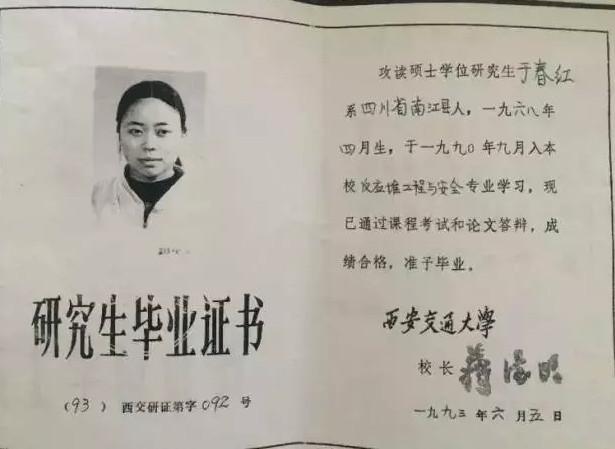 研究生毕业证书
(93) 西交研证第字092号
攻读硕士学位研究生于春红
系四川省南江县人，一九六八年
四月生，于一九九〇年九月入本
校反应堆工程与安全专业学习，现
已通过课程考试和论文答辩，成
绩合格，准予毕业。
西安交通大学
校长 蒋德明
一九九三年六月五日